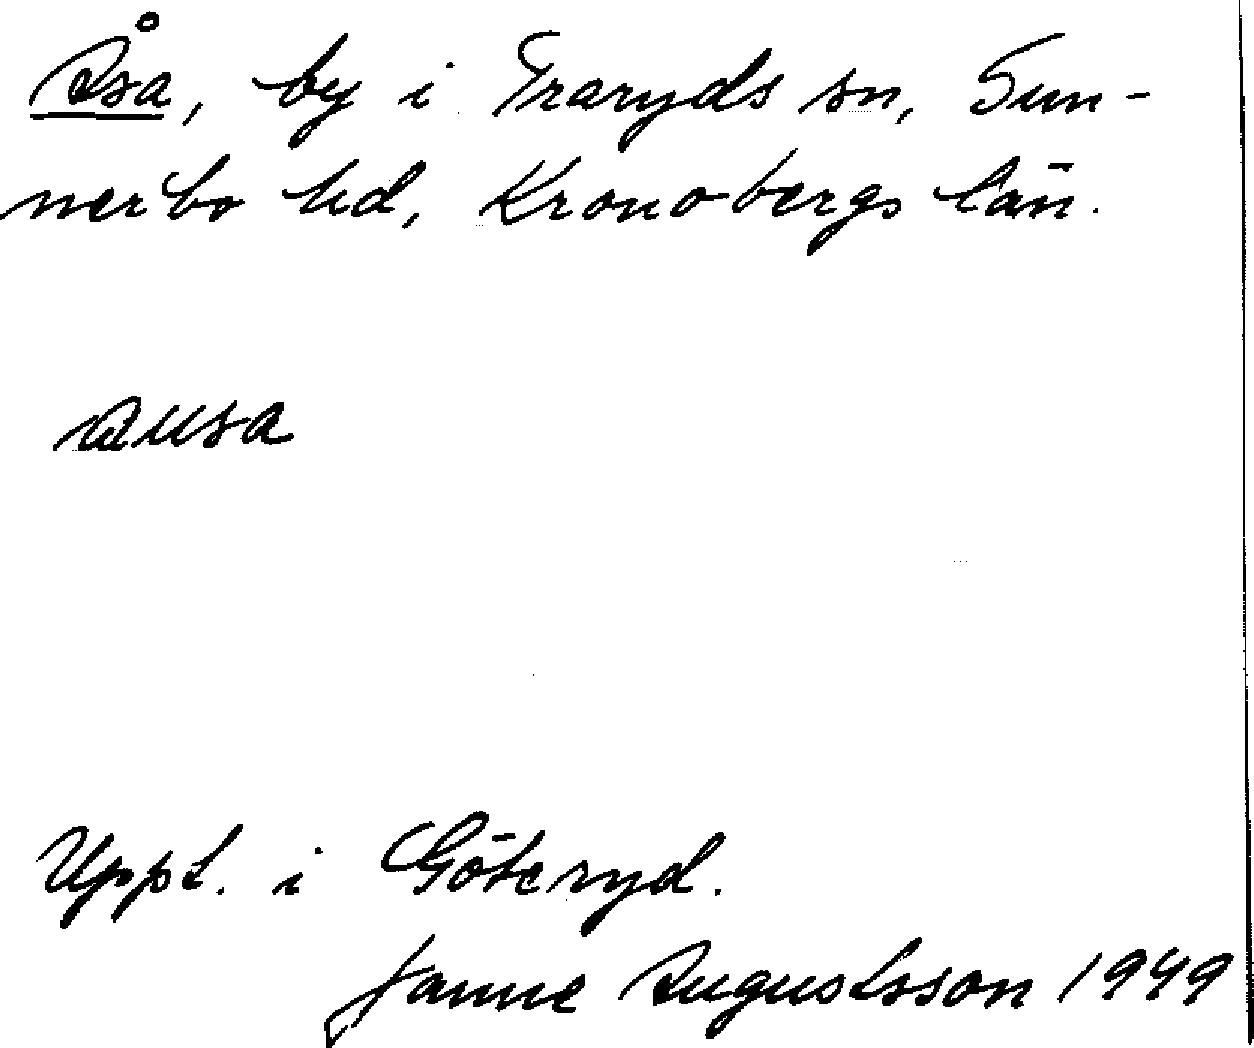 Åsa, by i Traryds sn, Sun-
nerbo hd, Kronobergs län.
ausa
Uppt. i Göteryd.
Janne Augustsson 1949